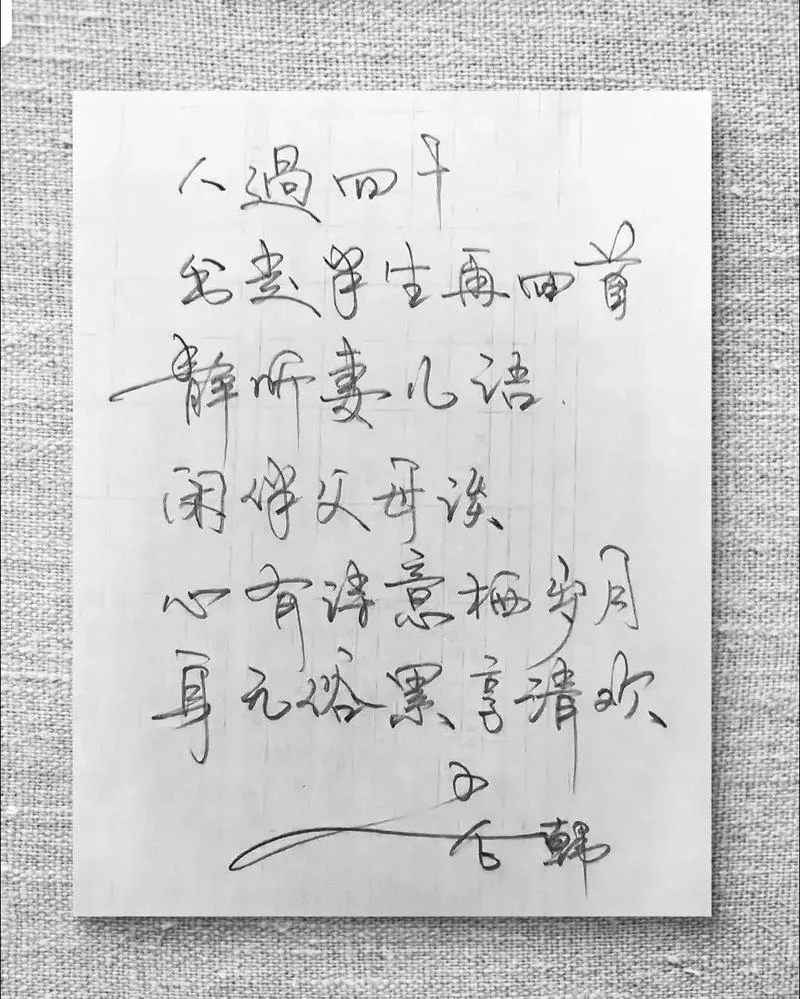 人過四十
半生再回首
静听妻儿语
闲伴父母谈
心有诗意栖岁月
身无俗累享清欢
韩